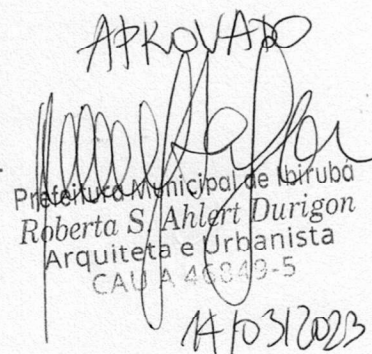 APROVADO
Prefeitura Municipal de Ibirubá
Roberta S. Ahlert Durigon
Arquiteta e Urbanista
CAU A 46849-5
14/03/2023